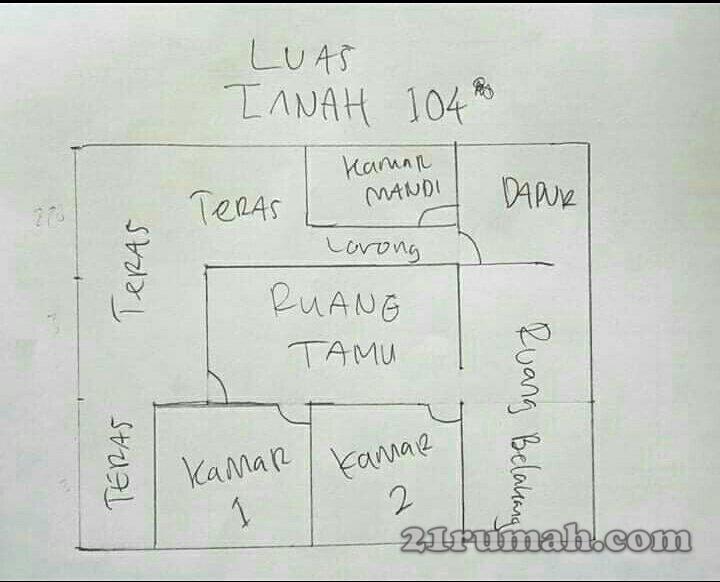 LUAS
TANAH 104
Kamar
MANDI
DAPUR
TERAS
TERAS
Lorong
RUANG
TAMU
Ruang Belakang
TERAS
KAMAR
1
KAMAR
2
21rumah.com